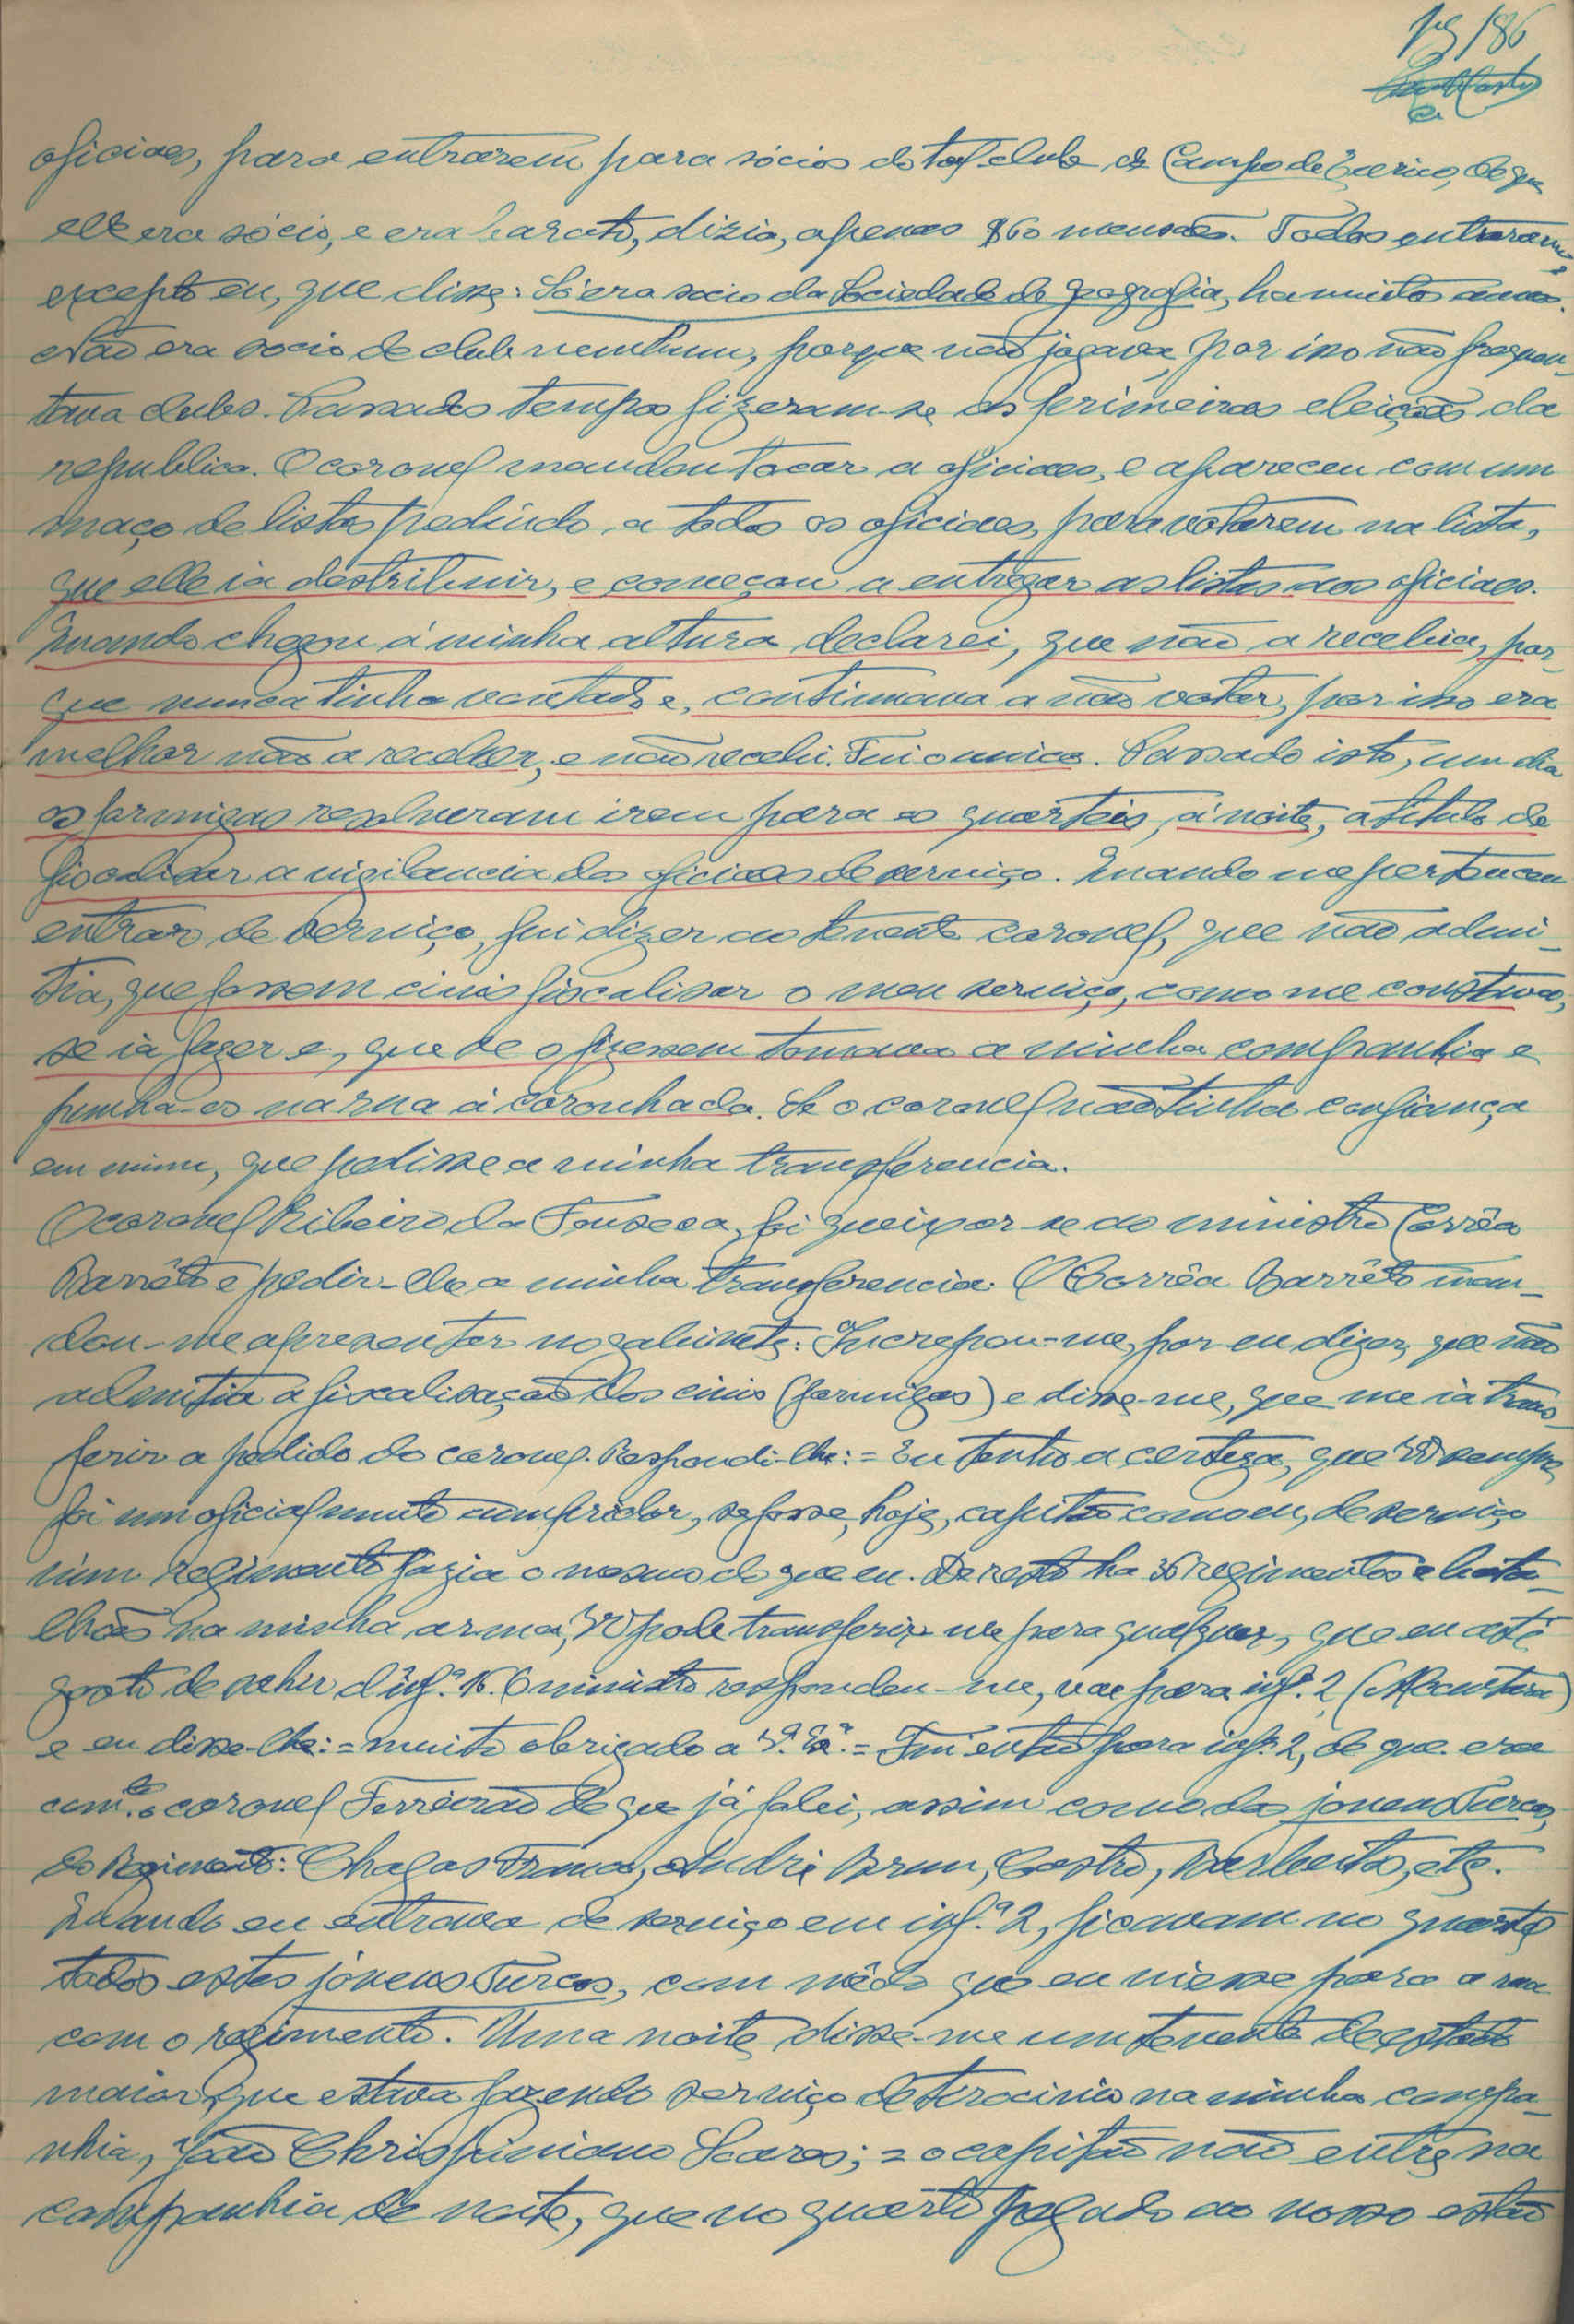 186
oficiaes, para entrarem para sócios do tal club de Campo de Ourique, de que
elle era sócio, e era barato, dizia, apenas $60 mensaes. Todos entraram,
excepto eu, que disse: Só era socio da Sociedade de Geografia, ha muitos anos.
Não era socio de club nenhum, porque não jogava, por isso não frequen-
tava clubs. Passados tempos fizeram-se as primeiras eleições da
republica. O coronel mandou tocar a oficiaes, e apareceu com um
maço de listas pedindo, a todos os oficiaes, para votarem na lista,
que elle ia destribuir, e começou a entregar as listas aos oficiaes.
Quando chegou á minha altura declarei, que não a recebia, por-
que nunca tinha votado e, continuava a não votar, por isso era
melhor não a receber, e não recebi. Fui o unico. Passado isto, um dia
os formigas resolveram irem para os quarteis, á noite, a titulo de
fiscalisar a vigilancia dos oficiaes de serviço. Quando me pertenceu
entrar de serviço, fui dizer ao tenente coronel, que não admi-
tia, que fossem civis fiscalisar o meu serviço, como me constava,
se ia fazer e, que se o fizessem tomava a minha companhia e
punha-os na rua á coronhada. Se o coronel não tinha confiança
em mim, que pedisse a minha transferencia.
O coronel Ribeiro da Fonseca, foi queixar-se ao ministro Corrêa
Barrêto e pedir-lhe a minha transferencia. O Corrêa Barrêto man-
dou-me apresentar no gabinete: Increpou-me, por eu dizer, que não
admitia a fiscalisação dos civis (formigas) e disse-me, que me ia trans-
ferir a pedido do coronel. Respondi-lhe: = Eu tenho a certeza, que sempre
foi um oficial muito cumpridor, se fosse, hoje, capitão como eu, de serviço
num regimento fazia o mesmo do que eu. De resto ha 36 regimentos e bata-
lhões na minha arma, pode transferir-me para qualquer, que eu até
gosto de sahir d'inf.ª 16. O ministro respondeu-me, vae para inf.ª 2
e eu disse-lhe: = muito obrigado a V.ª Ex.ª = Fui então para inf.ª 2, de que era
com.te o coronel Ferreirão de que já falei, assim como dos jovens Turcos,
do Regimento: Chagas Franco, André Brun, Castro, Barbeitos, etc.
Quando eu entrava de serviço em inf.ª 2, ficavam no quartel
todos estes jóvens Turcos, com mêdo que eu viesse para a rua
com o regimento. Uma noite, disse-me um tenente de estado
maior, que estava fazendo serviço de tirocinio na minha compa-
nhia, João Chrispiniano Soares; = o capitão não entre na
companhia de noite, que no quarto pegado ao nosso estão